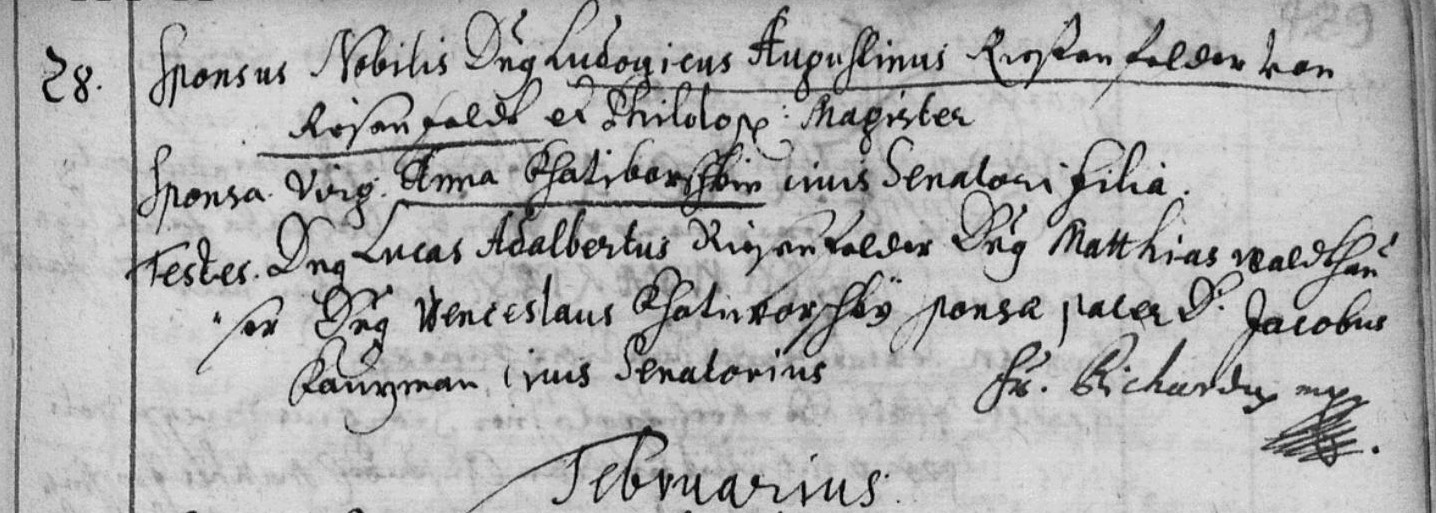 429
28. Sponsus Nobilis Dng Ludovicus Augustinus Riesenfelder von
Riesenfeldt et Philolog: Magister
Sponsa Virg. Anna civis Senatori filia.
Testes. Dng Lucas Adalbertus Riesenfelder Dng Matthias waldthau
ser Dng Wenceslaus sponsæ pater D. Jacobus
Kaufman, civis Senatorius Fr. Richardg mpp
Februarius.